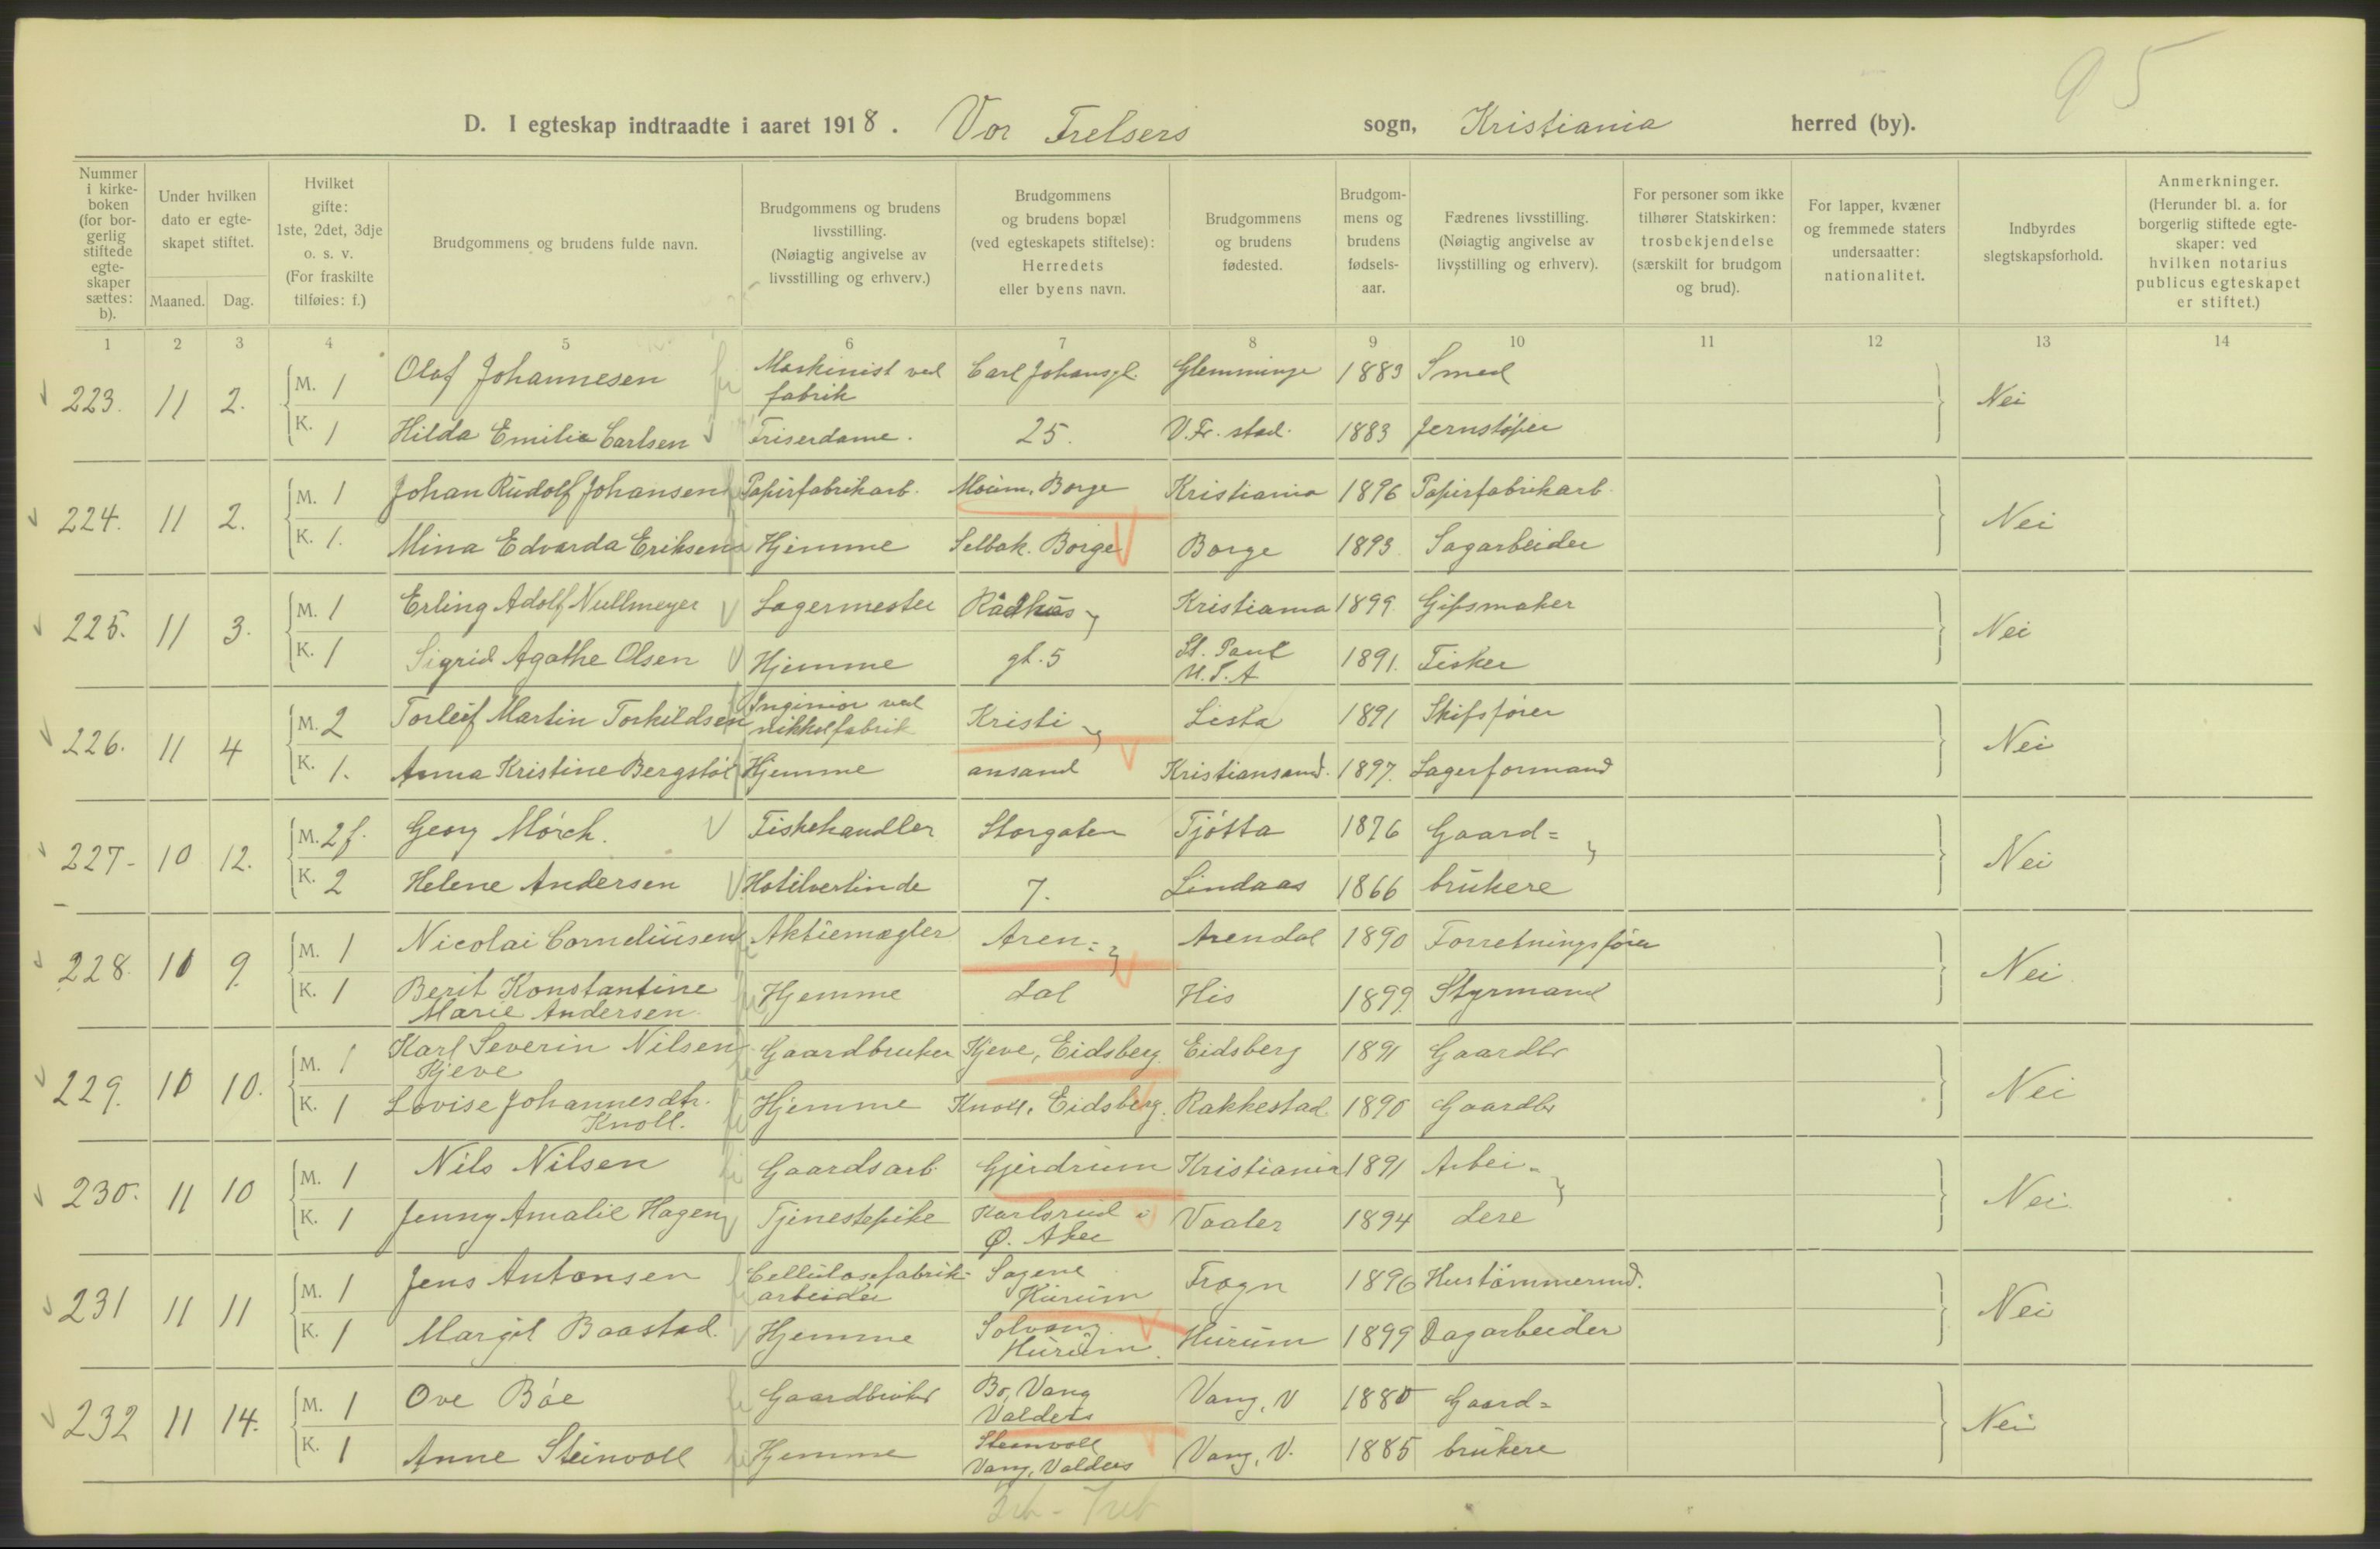 95
D. I egteskap indtraadte i aaret 1918. Vor Frelsers sogn, Kristiania herred (by).
Nummer i kirke-boken (for bor-gerlig stiftede egte-skaper sættes: b).
Under hvilken dato er egte-skapet stiftet.
Maaned. Dag.
Hvilket gifte: 1ste, 2det, 3dje o. s. v. (For fraskilte tilføies: f.)
Brudgommens og brudens fulde navn.
Brudgommens og brudens livsstilling. (Nøiagtig angivelse av livsstilling og erhverv.)
Brudgommens og brudens bopæl (ved egteskapets stiftelse): Herredets eller byens navn.
Brudgommens og brudens fødested.
Brudgom-mens og brudens fødsels-aar.
Fædrenes livsstilling. (Nøiagtig angivelse av livsstilling og erhverv).
For personer som ikke tilhører Statskirken: trosbekjendelse (særskilt for brudgom og brud).
For lapper, kvæner og fremmede staters undersaatter: nationalitet.
Indbyrdes slegtskapsforhold.
Anmerkninger. (Herunder bl. a. for borgerlig stiftede egte-skaper: ved hvilken notarius publicus egteskapet er stiftet.)
1 2 3 4 5 6 7 8 9 10 11 12 13 14
223. 11 2. M. 1 Olaf Johannesen Maskinist ved fabrik Carl Johansgt. Glemminge 1883 Smed Nei
K. 1 Hilda Emilie Carlsen Friserdame. 25. V. Fr. stad. 1883 Jernstøper
224. 11 2. M. 1 Johan Rudolf Johansen Papirfabrikarb. Moum, Borge Kristiania 1896 Papirfabrikarb. Nei
K. 1. Mina Edvarda Eriksen Hjemme Selbak. Borge Borge 1893 Sagarbeider
225. 11 3. M. 1 Erling Adolf Nullmeyer Lagermester Rådhus Kristiania 1899. Gipsmaker Nei
K. 1 Sigrid Agathe Olsen Hjemme gt. 5 St. Paul U.S.A 1891. Fisker
226. 11 4 M. 2 Torleif Martin Torkildsen Ingeniør ved nikkelfabrik Kristi Lista 1891 Skipsfører Nei
K. 1. Anna Kristine Bergstøl Hjemme ansand Kristiansand. 1897. Lagerformand
227- 10 12. M. 2 f. Georg Mørch. Fiskehandler Storgaten Tjøtta 1876 Gaard= Nei
K. 2 Helene Andersen Hotelvertinde 7. Lindaas 1866 brukere
228. 10 9. M. 1 Nicolai Corneliusen Aktiemægler Aren= Arendal 1890 Forretningsfører Nei
K. 1 Berit Konstantine Marie Andersen. Hjemme dal His 1899. Styrmand
229. 10 10. M. 1 Karl Severin Nilsen Kjeve Gaardbruker Kjeve, Eidsberg Eidsberg 1891 Gaardbr Nei
K. 1 Lovise Johannesdtr. Knoll. Hjemme Knoll, Eidsberg. Rakkestad 1890 Gaardbr
230. 11 10 M. 1 Nils Nilsen Gaardsarb. Gjerdrum Kristiania 1891 Arbei- Nei
K. 1 Jenny Amalie Hagen Tjenestepike Karlsrud i Ø. Aker Vaaler 1894 dere
231 11 11 M. 1 Jens Antonsen Cellulosefabrik-arbeider Sagene Hurum Frogn 1896 Hustømmermd. Nei
K. 1 Margit Baastad. Hjemme Solvang Hurum. Hurum 1899 Dagarbeider
232 11 14. M. 1 Ove Bøe Gaardbruker Bø, Vang Valders Vang, V 1880 Gaard= Nei
K. 1 Anne Steinvoll Hjemme Steinvoll Vang, Valders Vang, V. 1885 brukere